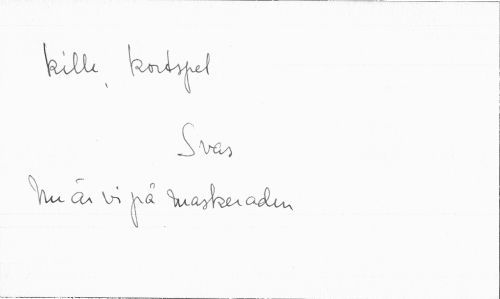 kille, kortspel
Svas
Nu är vi på maskeraden